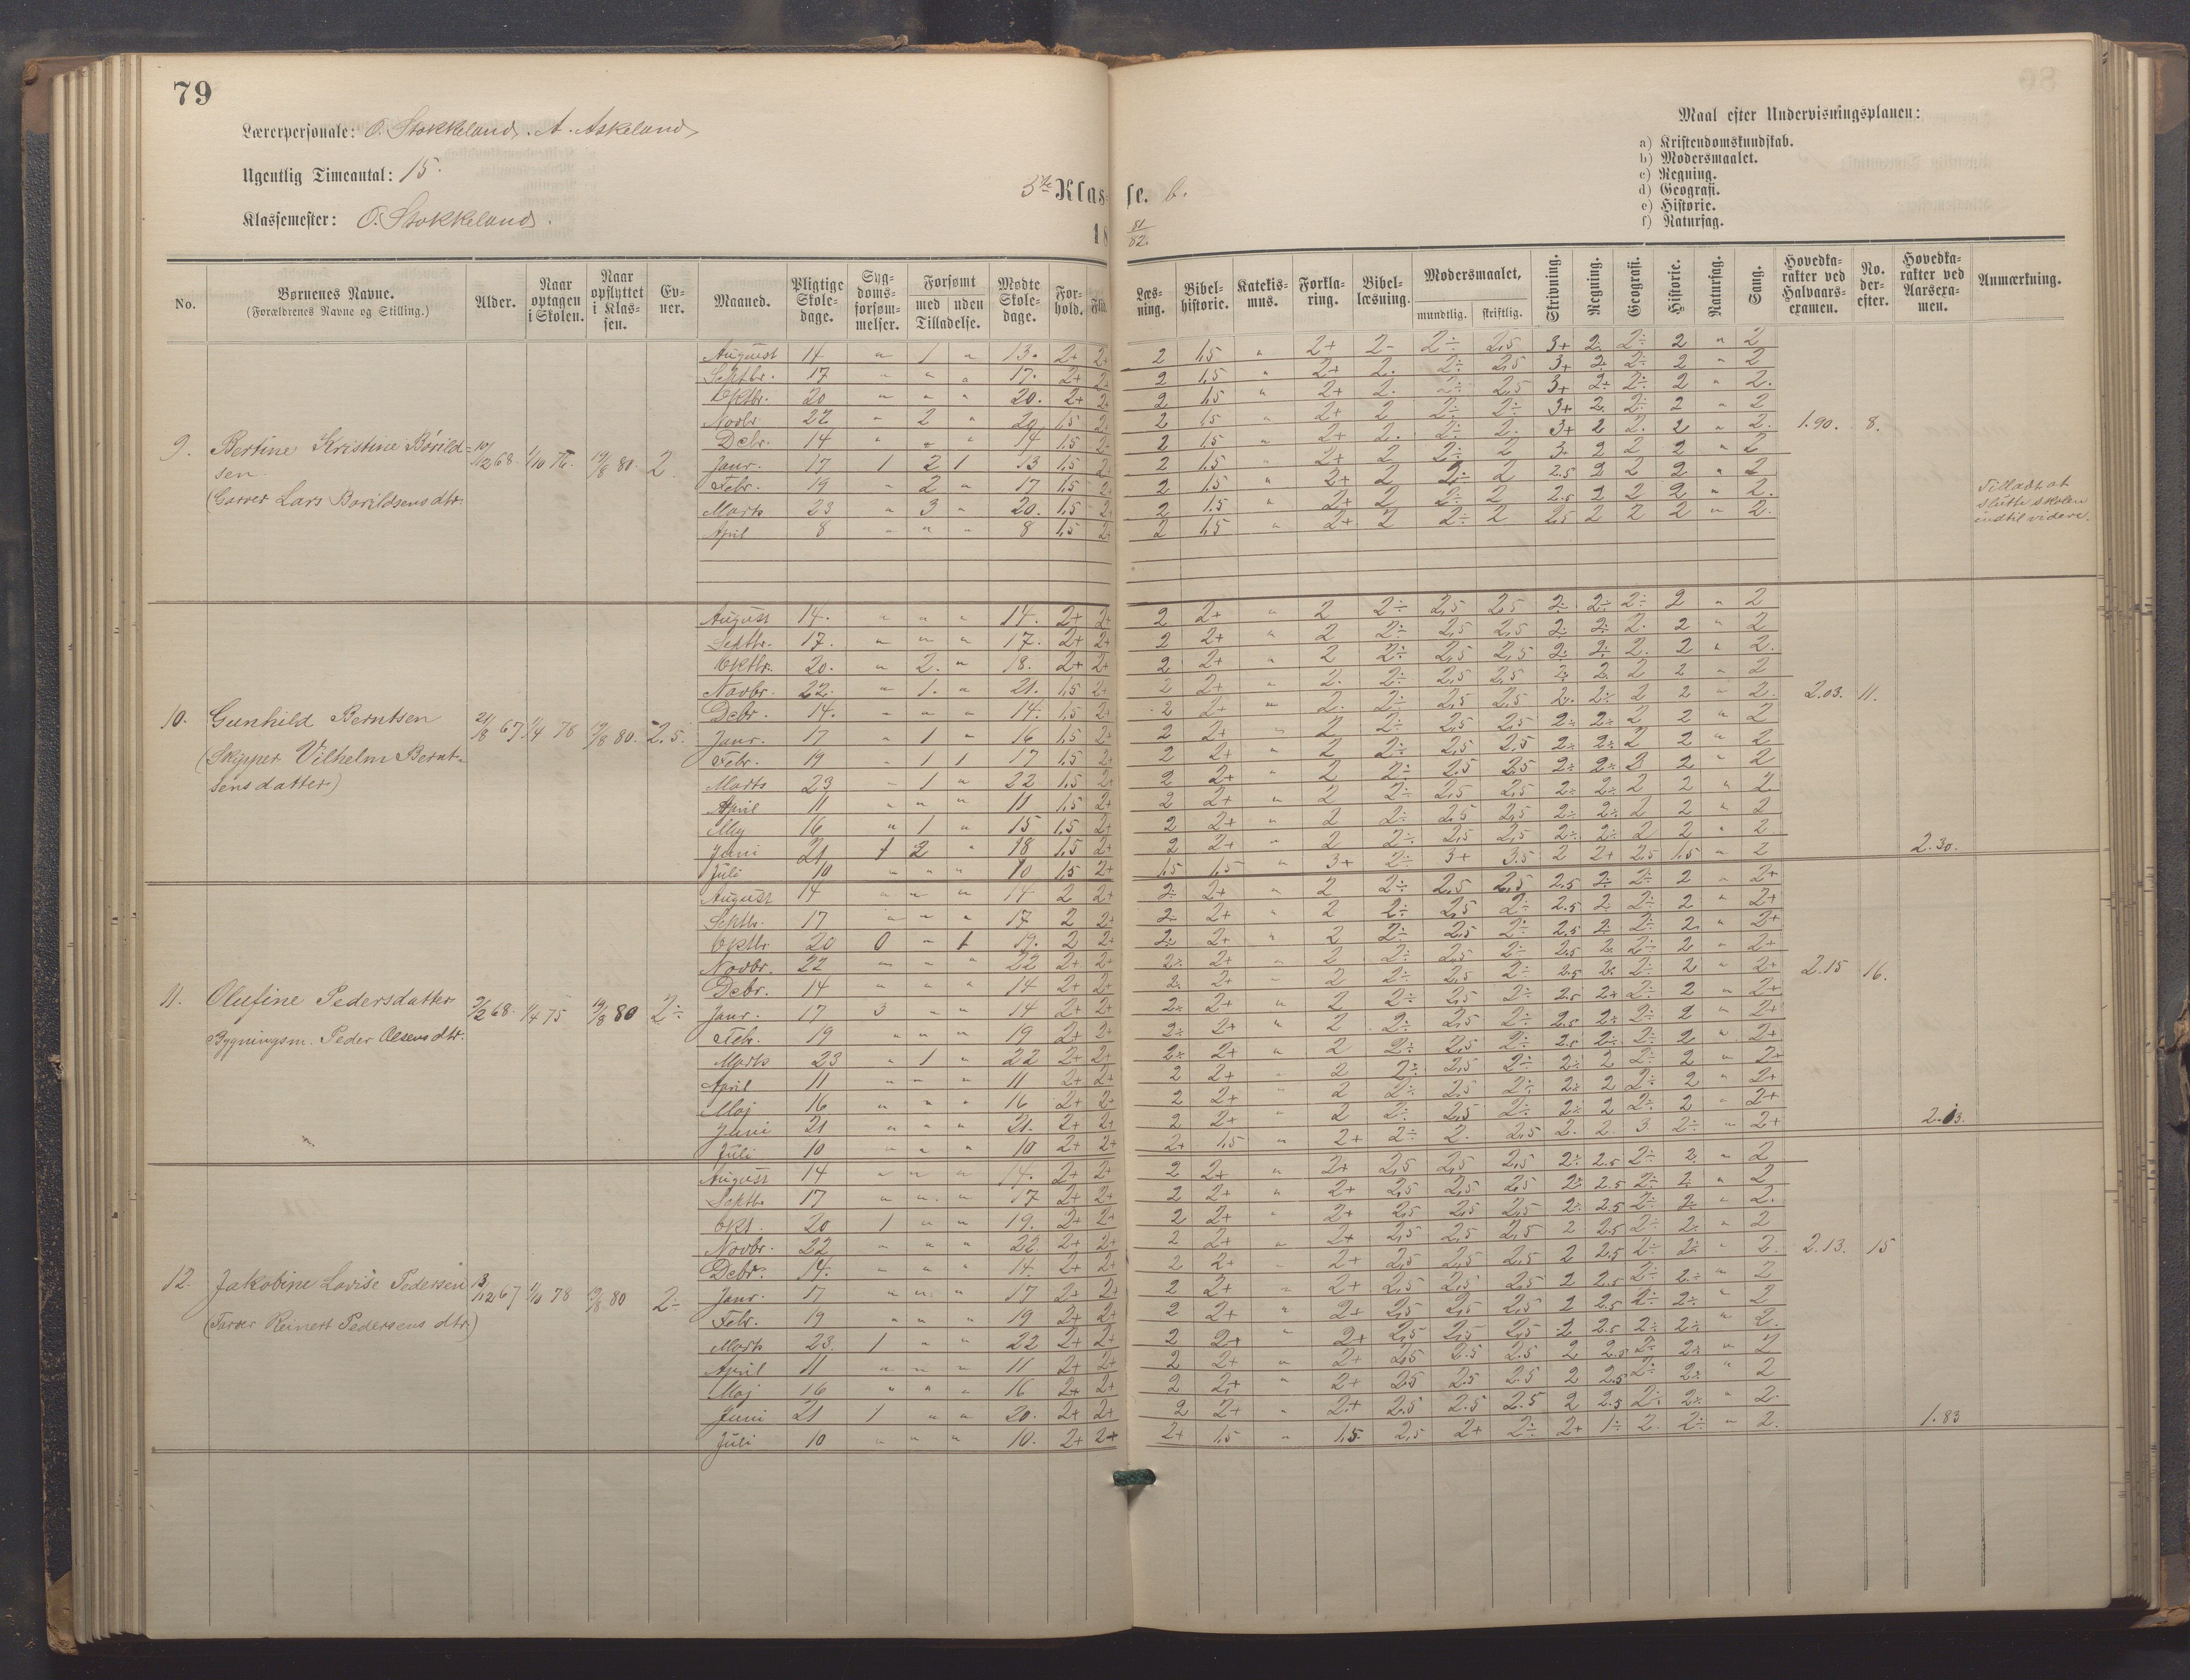 79
Lærerpersonale: O. Stokkeland. A. Askeland
Ugentlig Timeantal: 15.
Klassemester: O. Stokkeland.
5te Klas-
18
se. b.
81/82.
Maal efter Undervisningsplanen:
a) Kristendomskundskab.
b) Modersmaalet.
c) Regning.
d) Geografi.
e) Historie.
f) Naturfag.
No. | Børnenes Navne. (Forældrenes Navne og Stilling.) | Alder. | Naar optagen i Skolen. | Naar opflyttet i Klassen. | Evner. | Maaned. | Pligtige Skoledage. | Sygdomsforsømmelser. | Forsømt med uden Tilladelse. | Mødte Skoledage. | Forhold. | Flid. | Læsning. | Bibelhistorie. | Katekismus. | Forklaring. | Bibellæsning. | Modersmaalet, mundtlig. skriftlig. | Skrivning. | Regning. | Geografi. | Historie. | Naturfag. | Sang. | Hovedkarakter ved Halvaarsexamen. | No. derefter. | Hovedkarakter ved Aarsexamen. | Anmærkning.
9. Bertine Kristine Børildsen
(Garver Lars Børildsens dtr.
10/12 68. 1/10 76. 19/8 80. 2
August 14 " 1 " 13. 2+ 2+ 2 1,5 " 2+ 2- 2÷ 2,5 3+ 2. 2÷ 2 " 2
Septbr. 17 " " " 17. 2+ 2+ 2 1,5 " 2+ 2. 2÷ 2,5 3+ 2. 2÷ 2 " 2
Oktbr. 20 " " " 20. 2+ 2+ 2 1,5 " 2+ 2. 2÷ 2,5 3+ 2÷ 2÷ 2 " 2.
Novbr 22 " 2 " 20 1,5 2+ 2 1,5 " 2+ 2 2÷ 2÷ 3+ 2. 2÷ 2 " 2
Debr. 14 " " " 14 1,5 2+ 2 1,5 " 2+ 2. 2÷ 2. 3+ 2 2. 2 " 2.
Janr. 17 1 2 1 13 1,5 2+ 2 1,5 " 2+ 2 2÷ 2 3+ 2 2 2 " 2
Febr. 19 " 2 " 17 1,5 2+ 2 1,5 " 2+ 2 2÷ 2 2.5 2 2 2 " 2
Marts 23 " 3 " 20. 1,5 2+ 2 1,5 " 2+ 2 2÷ 2 2.5 2 2 2 " 2.
April 8 " " " 8 1,5 2+ 2 1,5 " 2+ 2 2÷ 2 2,5 2 2 2 " 2.
1.90. 8.
Tilladt at
slutte skolen
indtil videre.
10. Gunhild Berntsen
(Skipper Vilhelm Bernt-
sens datter)
21/8 67. 1/4 78 19/8 80. 2.5.
August 14. " " " 14. 2+ 2+ 2 2+ " 2 2÷ 2,5 2,5 2÷ 2÷ 2÷ 2 " 2
Septbr. 17. " " " 17. 2+ 2+ 2 2+ " 2 2÷ 2,5 2,5 2÷ 2÷ 2. 2 " 2
Oktbr. 20. " 2. " 18. 2+ 2+ 2 2+ " 2 2÷ 2,5 2,5 2÷ 2÷ 2. 2 " 2.
Novbr. 22. " 1. " 21. 1,5 2+ 2 2+ " 2. 2÷ 2,5 2,5 2. 2. 2 2 " 2
Debr. 14. " " " 14. 1,5 2+ 2 2+ " 2. 2÷ 2,5 2,5 2. 2÷ 2 2 " 2.
Janr. 17 " 1 " 16 1,5 2+ 2 2+ " 2 2÷ 2,5 2,5 2÷ 2÷ 2 2 " 2
Febr. 19 " 1 1 17 1,5 2+ 2 2+ " 2 2÷ 2,5 2,5 2÷ 2÷ 2 2 " 2
Marts 23 " 1 " 22 1,5 2+ 2 2+ " 2 2÷ 2,5 2,5 2÷ 2÷ 2 2 " 2
April 11 " " " 11 1,5 2+ 2 2+ " 2 2÷ 2,5 2,5 2÷ 2÷ 2 2 " 2.
Maj 16 " 1 " 15 1,5 2+ 2 2+ " 2 2÷ 2,5 2,5 2÷ 2÷ 2 2 " 2
Juni 21 1 2 " 18 1,5 2+ 2 2+ " 2 2÷ 2,5 2,5 2÷ 2÷ 2 2 " 2
Juli 10 " " " 10 1,5 2+ 1,5 1,5 " 3+ 2÷ 3+ 3.5 2 2+ 2,5 1,5 " 2
2.03. 11. 2.30.
11. Olufine Pedersdatter
Bygningsm. Peder Olsens dtr.
9/2 68. 1/4 75 19/8 80 2÷
August 14 " " " 14 2 2+ 2÷ 2+ " 2 2÷ 2,5 2,5 2.5 2÷ 2÷ 2 " 2+
Septbr. 17 " " " 17 2 2+ 2÷ 2+ " 2 2÷ 2,5 2÷ 2.5 2÷ 2÷ 2 " 2+
Oktbr 20 0 " 1 19. 2 2+ 2÷ 2+ " 2 2÷ 2,5 2÷ 2.5 2÷ 2÷ 2 " 2+
Novbr. 22 " " " 22 2+ 2+ 2÷ 2+ " 2 2÷ 2,5 2÷ 2.5 2. 2÷ 2 " 2+
Debr. 14 " " " 14 2+ 2+ 2÷ 2+ " 2 2÷ 2,5 2÷ 2.5 2. 2÷ 2 " 2+
Janr. 17 3 " " 14 2+ 2+ 2÷ 2+ " 2 2÷ 2,5 2÷ 2.5 2+ 2÷ 2 " 2+
Febr. 19 " " " 19 2+ 2+ 2÷ 2+ " 2 2÷ 2,5 2÷ 2.5 2÷ 2÷ 2 " 2+
Marts 23 " 1 " 22 2+ 2+ 2÷ 2+ " 2 2÷ 2,5 2÷ 2.5 2÷ 2÷ 2 " 2+
April 11 " " " 11 2+ 2+ 2 2+ " 2 2÷ 2,5 2÷ 2÷ 2 2÷ 2 " 2+
Maj 16 " " " 16 2+ 2+ 2 2+ " 2 2÷ 2,5 2÷ 2÷ 2 2÷ 2 " 2+
Juni 21 " " " 21. 2+ 2+ 2 2+ " 2 2÷ 2,5 2÷ 2÷ 2 2÷ 2 " 2+
Juli 10 " " " 10 2+ 2+ 2+ 1,5 " 2+ 2÷ 2. 2,5 2. 2 3. 2÷ " 2+
2.15 16. 2.13.
12. Jakobine Lovise Pedersen
(Farver Reinert Pedersens dtr.)
13/12 67 1/10 78 19/8 80 2÷
August 14 " " " 14. 2+ 2+ 2 2+ " 2+ 2,5 2,5 2,5 2÷ 2.5 2÷ 2. " 2
Septbr 17 " " " 17 2+ 2+ 2 2+ " 2+ 2,5 2,5 2,5 2÷ 2.5 2÷ 2÷ " 2
Okt. 20 1 " " 19. 2+ 2+ 2 2+ " 2+ 2,5 2,5 2,5 2÷ 2.5 2÷ 2÷ " 2.
Novbr. 22 " " " 22. 2+ 2+ 2 2+ " 2+ 2,5 2,5 2,5 2 2.5 2÷ 2÷ " 2
Debr. 14. " " " 14. 2+ 2+ 2 2+ " 2+ 2,5 2,5 2,5 2 2.5 2÷ 2÷ " 2.
Janr. 17 " " " 17 2+ 2+ 2 2+ " 2+ 2,5 2,5 2,5 2 2.5 2÷ 2÷ " 2
Febr. 19 " " " 19 2+ 2+ 2 2+ " 2+ 2,5 2,5 2,5 2 2.5 2÷ 2÷ " 2
Marts 23. 1 " " 22 2+ 2+ 2 2+ " 2+ 2,5 2,5 2,5 2 2.5 2÷ 2÷ " 2.
April 11 " " " 11 2+ 2+ 2 2+ " 2+ 2,5 2.5 2.5 2 2.5 2÷ 2÷ " 2
Maj 16 " " " 16 2+ 2+ 2 2+ " 2+ 2.5 2.5 2.5 2 2.5 2÷ 2÷ " 2
Juni 21 1 " " 20. 2+ 2+ 2 2+ " 2+ 2.5 2.5 2.5 2 2.5 2÷ 2÷ " 2.
Juli 10 " " " 10. 2+ 2+ 2+ 1,5 " 1,5 2,5 2+ 2÷ 2+ 1÷ 2. 2÷ " 2.
2.13. 15 1.83